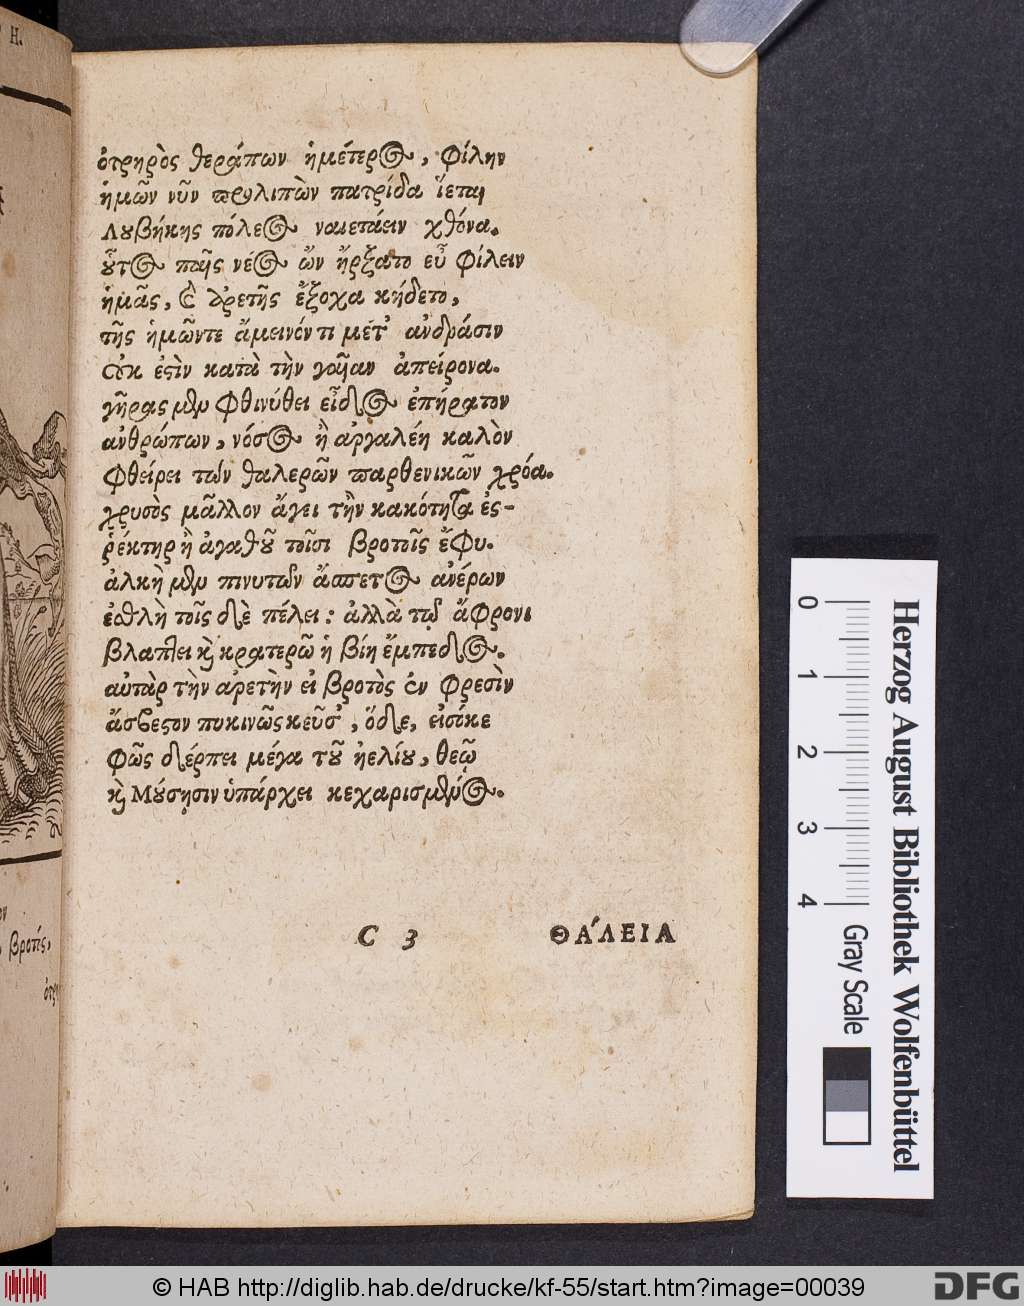 Η.
ὀτρηρὸς θεράπων ἡμέτερος, φίλην
ἡμῶν νῦν προλιπὼν πατρίδα ἵεται
Λυβήκης πόλεος ναιετάειν χθόνα.
οὗτος παῖς νέος ὢν ἤρξατο εὖ φίλειν
ἡμᾶς, καὶ ἀρετῆς ἔξοχα κήδετο,
τῆς ἡμῶντε ἄμεινόν τι μέτ' ἀνδράσιν
οὐκ ἐστὶν κατὰ τὴν γαῖαν ἀπείρονα.
γῆρας μὲν φθινύθει εἶδος ἐπήρατον
ἀνθρώπων, νόσος ἢ ἀργαλέη καλὸν
φθείρει τῶν θαλερῶν παρθενικῶν χρόα.
χρυσὸς μᾶλλον ἄγει τὴν κακότητα ἐς-
ῥέκτηρ ἢ ἀγαθοῦ τοῖσι βροτοῖς ἔφυ.
ἀλκὴ μὲν πινυτῶν ἄσπετος ἀνέρων
ἐσθλὴ τοῖς δὲ πέλει: ἀλλὰ τῷ ἄφρονι
βλαπτει καὶ κρατερῶ ἡ βίη ἔμπεδος.
αὐτὰρ τὴν ἀρετὴν εἰ βροτὸς ἐν φρεσὶν
ἄσβεστον πυκινῶς κεῦσ', ὅδε, εἰσίκε
φῶς δέρπει μέγα τοῦ ἠελίου, θεῷ
καὶ Μούσῃσιν ὑπάρχει κεχαρισμένος.
C 3 ΘΑ´ΛΕΙΑ
βροτ
ὀτρ
0 1 2 3 4
Gray Scale
Herzog August Bibliothek Wolfenbüttel
© HAB http://diglib.hab.de/drucke/kf-55/start.htm?image=00039
DFG